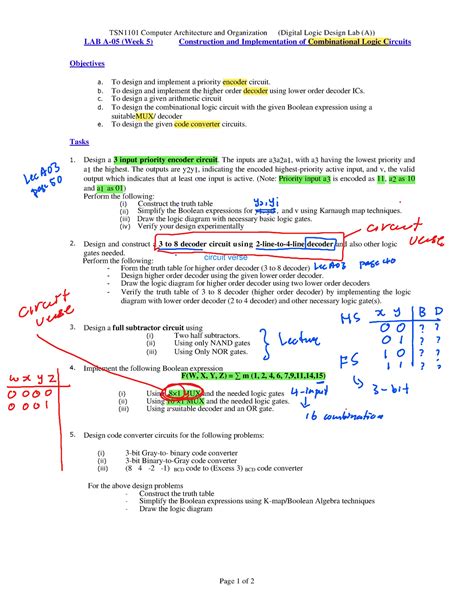 TSN1101 Computer Architecture and Organization (Digital Logic Design Lab (A))
LAB A-05 (Week 5) Construction and Implementation of Combinational Logic Circuits
Objectives
a. To design and implement a priority encoder circuit.
b. To design and implement the higher order decoder using lower order decoder ICs.
c. To design a given arithmetic circuit
d. To design the combinational logic circuit with the given Boolean expression using a
suitableMUX/ decoder
e. To design the given code converter circuits.
Tasks
1. Design a 3 input priority encoder circuit. The inputs are a3a2a1, with a3 having the lowest priority and
a1 the highest. The outputs are y2y1, indicating the encoded highest-priority active input, and v, the valid
output which indicates that at least one input is active. (Note: Priority input a3 is encoded as 11, a2 as 10
and a1 as 01)
Lec A03
page 50
Perform the following:
(i) Construct the truth table
(ii) Simplify the Boolean expressions for and v using Karnaugh map techniques.
(iii) Draw the logic diagram with necessary basic logic gates.
(iv) Verify your design experimentally
circuit
verse
2. Design and construct a 3 to 8 decoder circuit using 2-line-to-4-line decoder and also other logic
gates needed.
circuit verse
Perform the following:
- Form the truth table for higher order decoder (3 to 8 decoder) Lec A03 page 40
- Design higher order decoder using the given lower order decoder.
- Draw the logic diagram for higher order decoder using two lower order decoders
- Verify the truth table of 3 to 8 decoder (higher order decoder) by implementing the logic
diagram with lower order decoder (2 to 4 decoder) and other necessary logic gate(s).
circuit
verse
HS x y B D
0 0 ? ?
0 1 ? ?
1 0 ? ?
1 1 ? ?
FS
3-bit
3. Design a full subtractor circuit using
(i) Two half subtractors.
(ii) Using only NAND gates
(iii) Using Only NOR gates.
Lecture
4. Implement the following Boolean expression
F(W, X, Y, Z) = ∑ m (1, 2, 4, 6, 7,9,11,14,15)
(i) Using 8×1 MUX and the needed logic gates
(ii) Using 16×1 MUX and the needed logic gates.
(iii) Using a suitable decoder and an OR gate.
4-input
16 combination
w x y z
0 0 0 0
0 0 0 1
5. Design code converter circuits for the following problems:
(i) 3-bit Gray-to- binary code converter
(ii) 3-bit Binary-to-Gray code converter
(iii) (8 4 -2 -1) BCD code to (Excess 3) BCD code converter
For the above design problems
- Construct the truth table
- Simplify the Boolean expressions using K-map/Boolean Algebra techniques
- Draw the logic diagram
Page 1 of 2